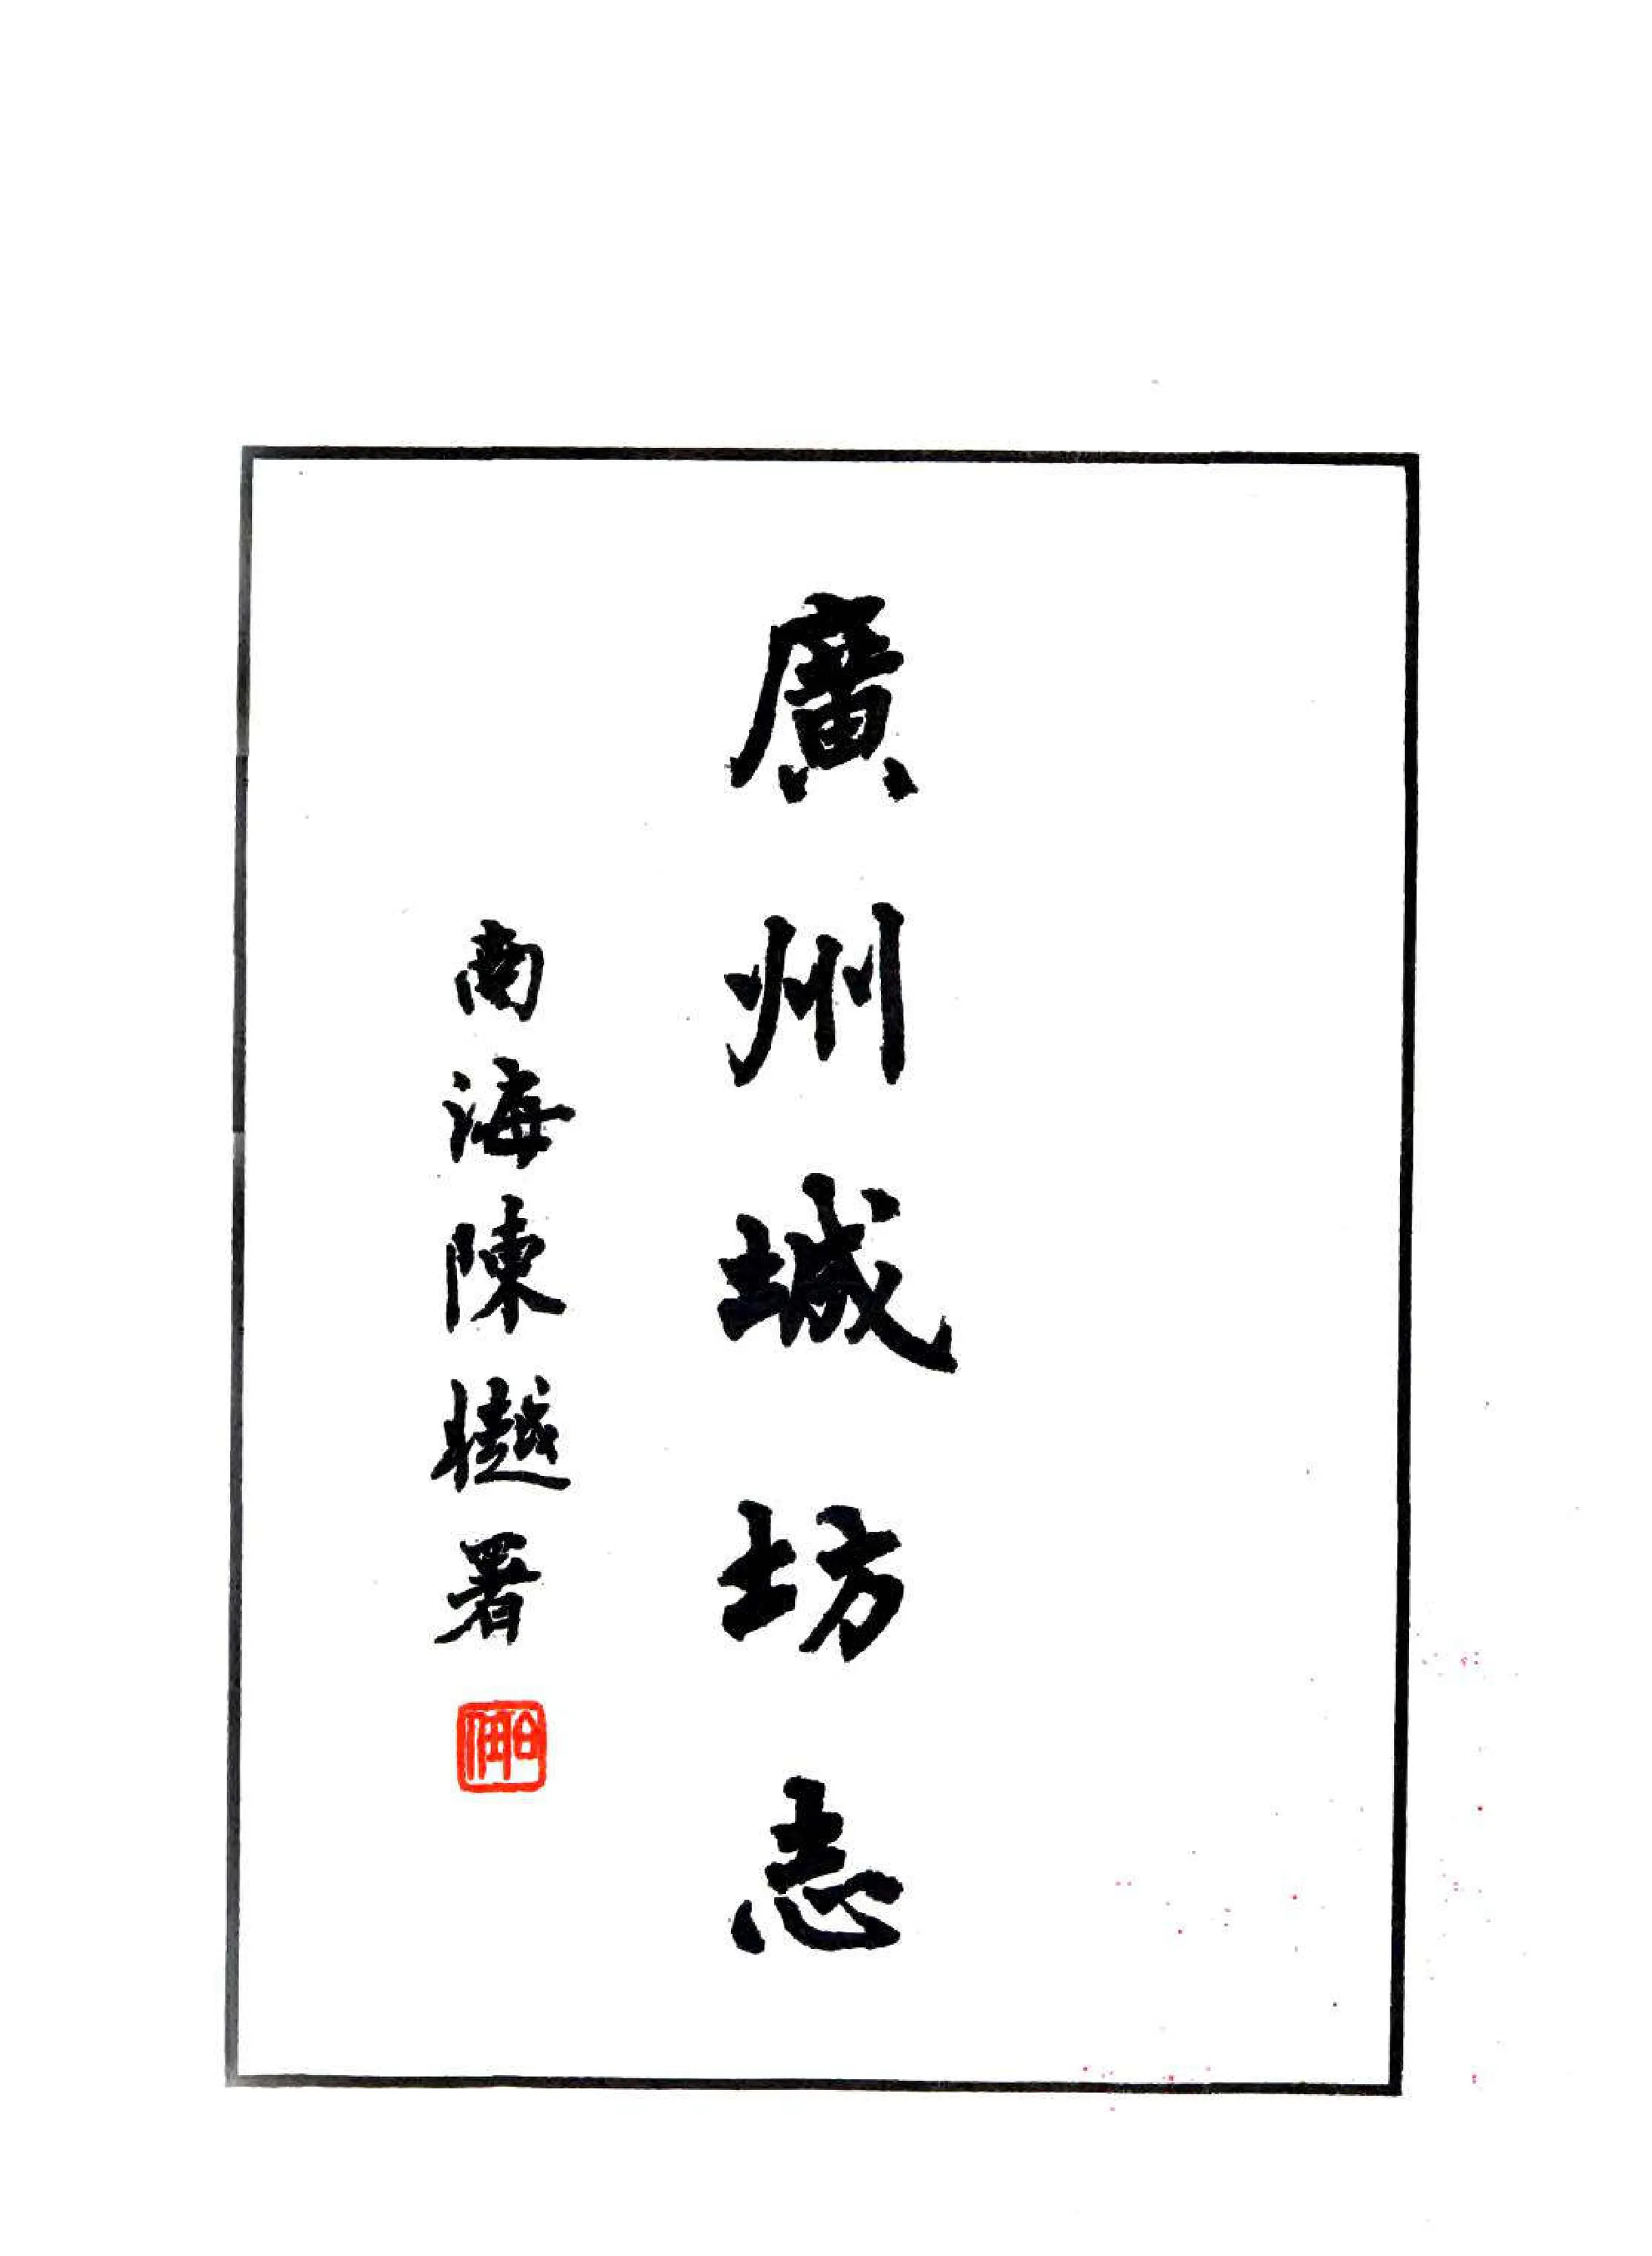 廣州城坊志
南海陳樾署